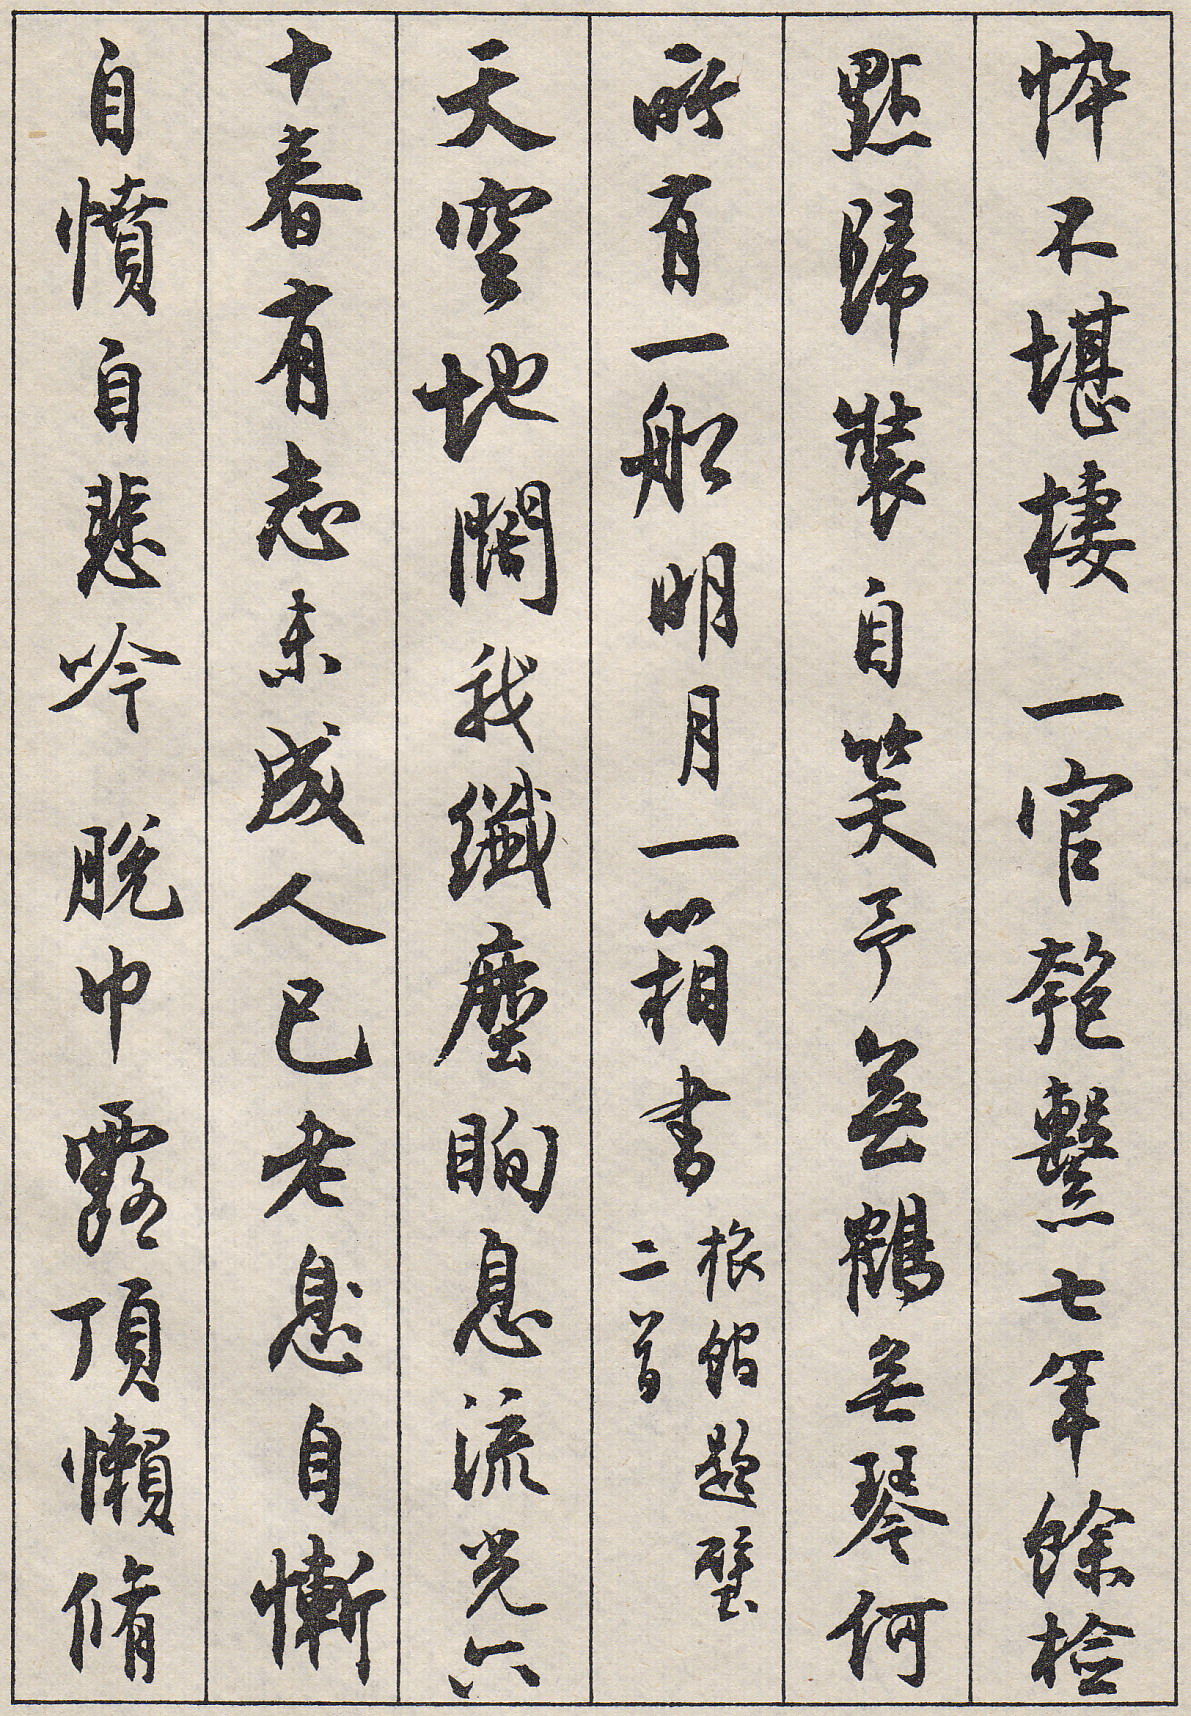 忰不堪棲一官匏繫七年餘檢
點歸裝自笑予無鶴無琴何
所有一船明月一箱書根館題壁
二首
天空地闊我纖塵眴息流光六
十春有志未成人已老息自慚
自憤自悲吟脫巾露頂懶脩